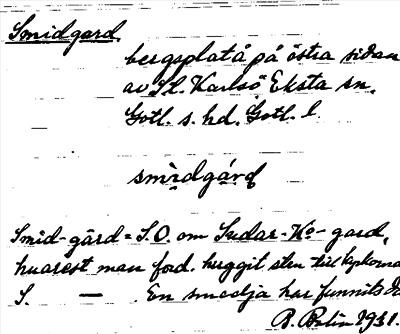 Smidgard.
bergsplatå på östra sidan
av St. Karlsö Eksta sn.
Gotl. s. hd. Gotl. l.
smidgárd
Smid-gård = S.O. om Sudar-Ko-gard,
huarest man ford. huggit sten till
S. — En smedja har funnits
1931.